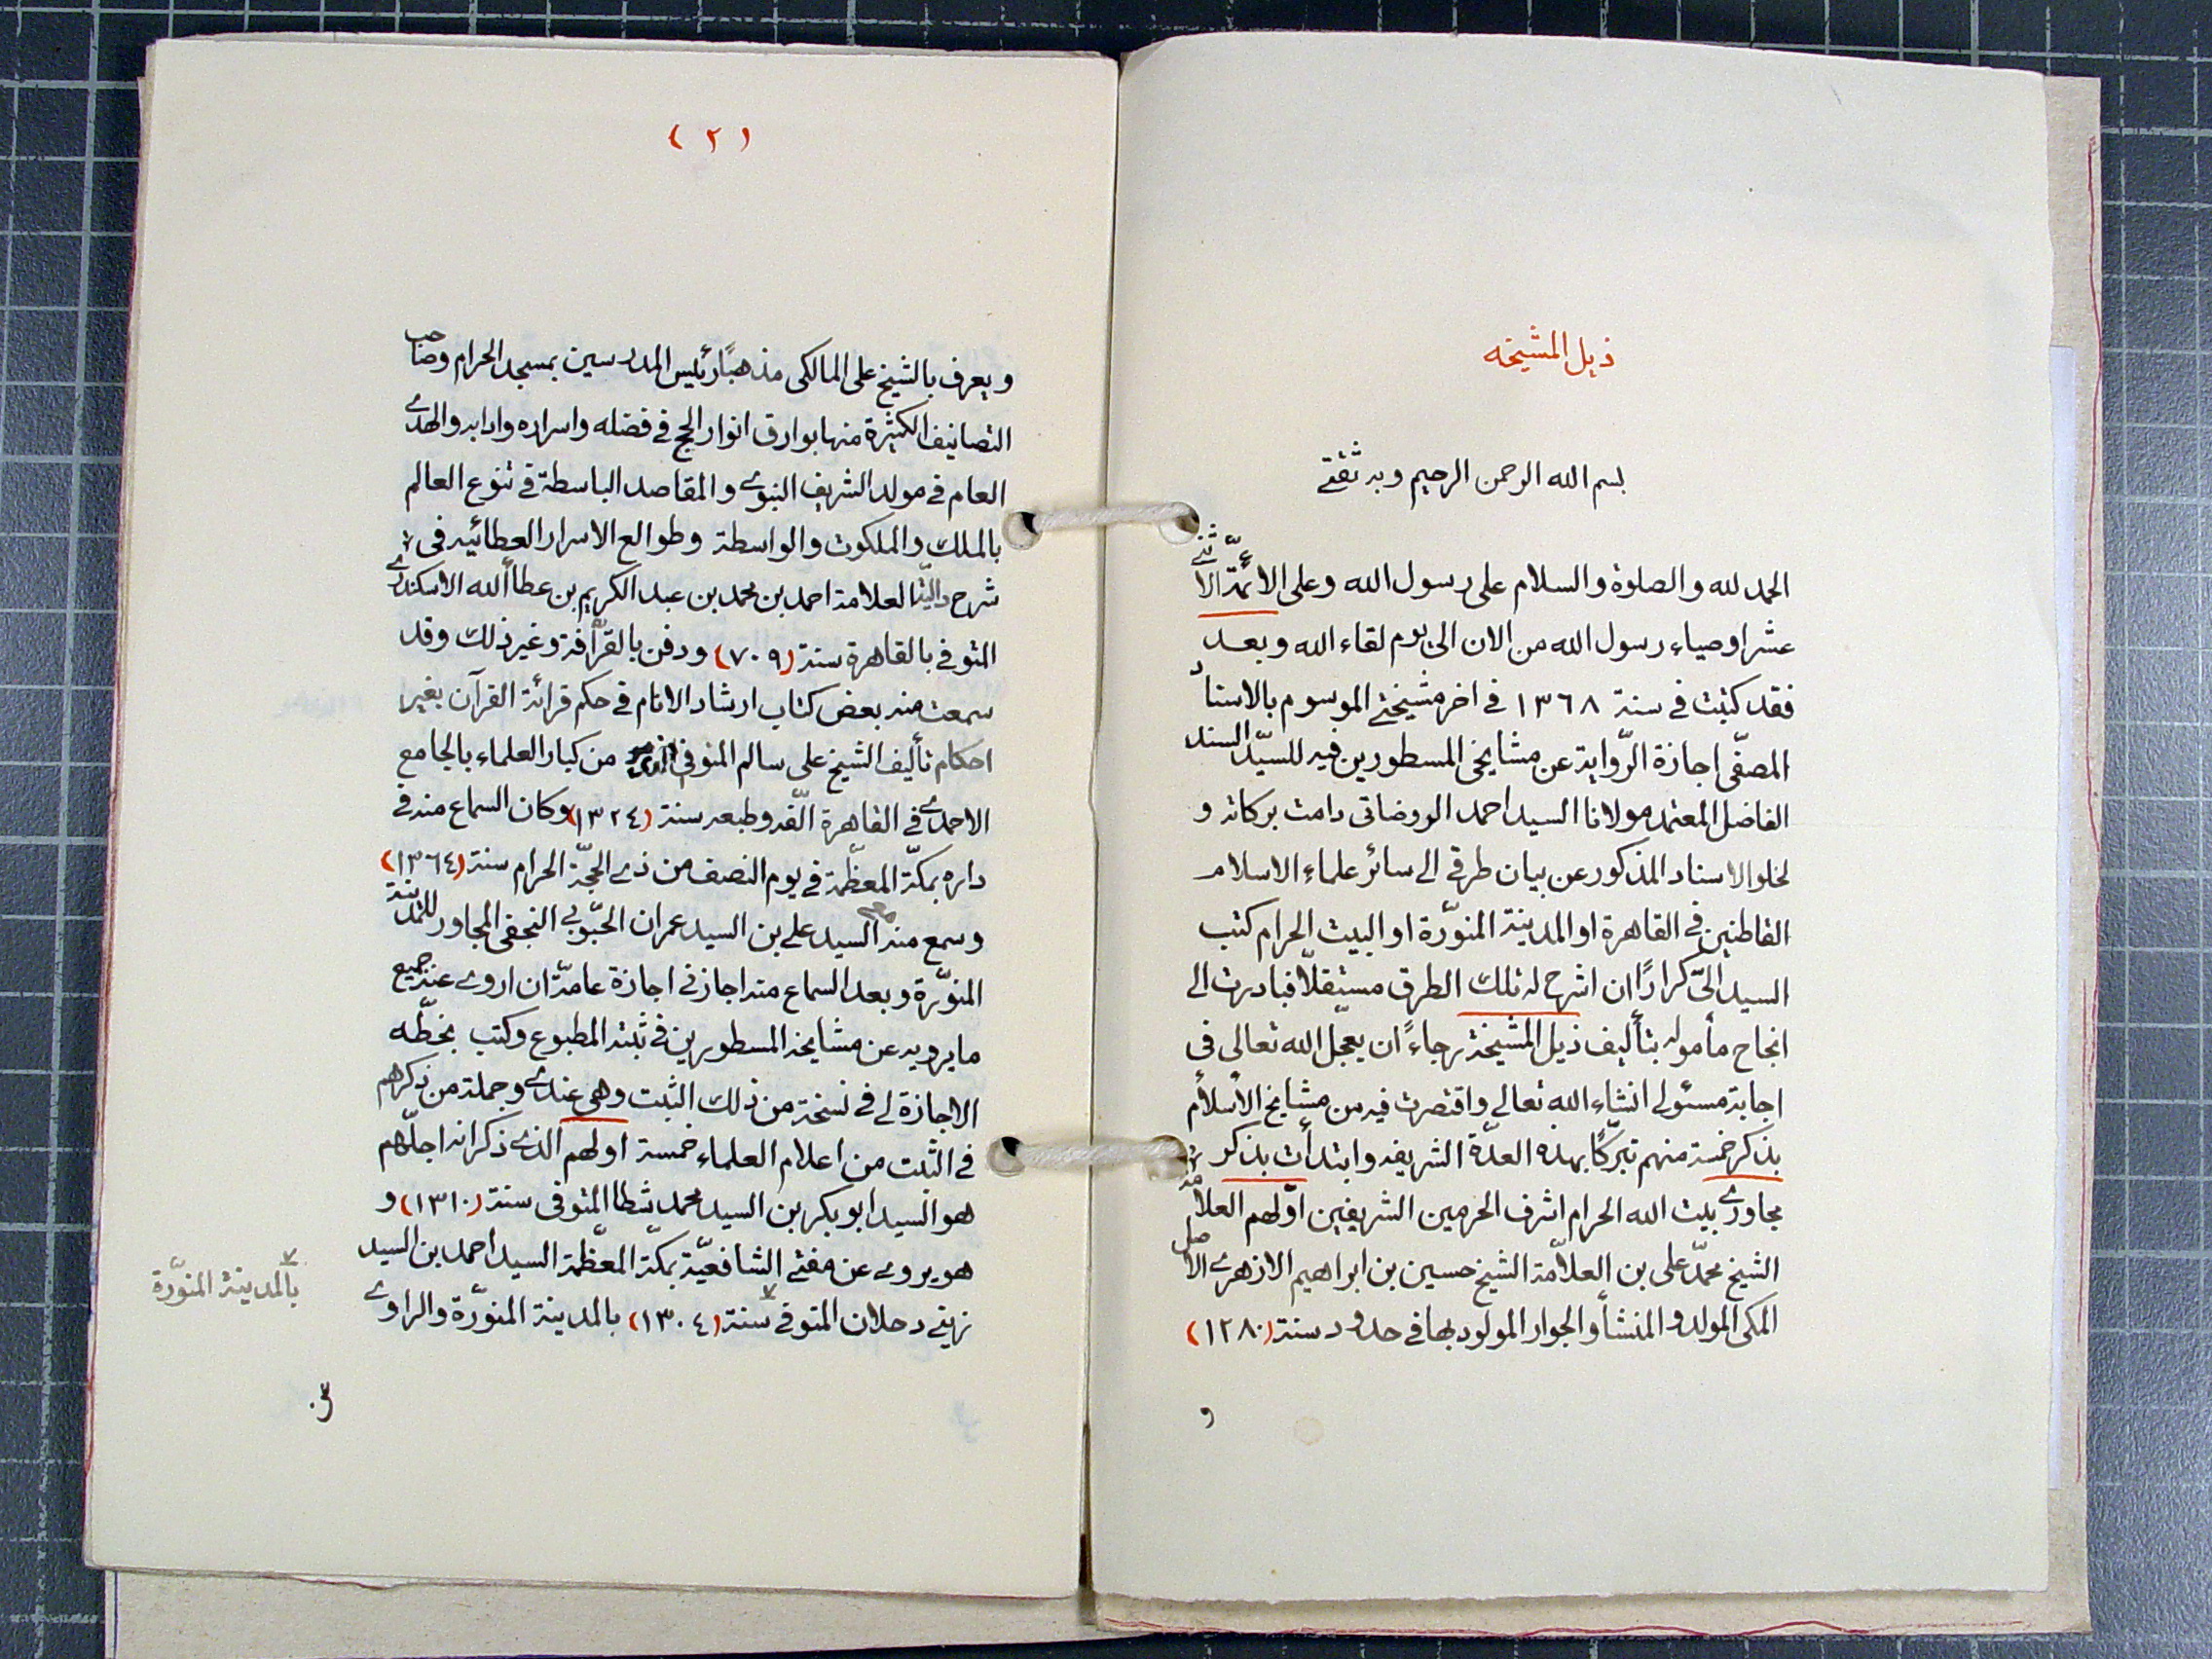 ذيل المشيخه
بسم الله الرحمن الرحيم وبه ثقتي
الحمد لله والصلوة والسلام على رسول الله وعلى الائمّة الاثنى
عشر اوصياء رسول الله من الان الى يوم لقاء الله وبعد
فقد كتبت في سنة ١٣٦٨ في اخر مشيختي الموسوم بالاسناد
المصفّى اجازة الرّواية عن مشايخى المسطورين فيه للسيّد السند
الفاضل المعتمد مولانا السيد احمد الروضاتى دامت بركاته و
لخلو الاسناد المذكور عن بيان طرقي الى سائر علماء الاسلام
القاطنين في القاهرة او المدينة المنوّرة او البيت الحرام كتب
السيد الىّ كرارًا ان اشرح له تلك الطرق مستقلّا فبادرت الى
انجاح مأموله بتأليف ذيل المشيخة رجاءً ان يعجّل الله تعالى فى
اجابة مسئولى انشاء الله تعالى واقتصرت فيه من مشايخ الأسلام
بذكر خمسة منهم تبرّكًا بهذه العدّة الشريفه وابتدأت بذكر
مجاورى بيت الله الحرام اشرف الحرمين الشريفين اوّلهم العلامة
الشيخ محمّد على بن العلاّمة الشيخ حسين بن ابراهيم الازهرى الاصل
المكى المولد والمنشأ والجوار المولود بها في حدود سنة (١٢٨٠)
و
(٢)
ويعرف بالشيخ على المالكى مذهبًا رئيس المدرسين بمسجد الحرام وصاحب
التصانيف الكثيرة منها بوارق انوار الحج في فضله واسراره وادابه والهدى
العام في مولد الشريف النبوى والمقاصد الباسطة في تنوع العالم
بالملك والملكوت والواسطة وطوالع الاسرار العطائيه فى
شرح العلامة احمد بن محمد بن عبد الكريم بن عطاأ الله الاسكندرى
المتوفي بالقاهرة سنة (٧٠٩) ودفن بالقرافة وغير ذلك وقد
سمعت منه بعض كتاب ارشاد الانام في حكم قرائة القرآن بغير
احكام تأليف الشيخ على سالم المنوفي من كبار العلماء بالجامع
الاحمدى في القاهرة الّفه وطبعه سنة (١٣٢٤) وكان السماع منه في
داره بمكّة المعظّمة في يوم النصف من ذى الحجّة الحرام سنة (١٣٦٤)
وسمع منه معي السيد على بن السيد عمران الحبّوبى النجفى المجاور للمدينة
المنوّرة وبعد السماع منه اجازنى اجازة عامّة ان اروى عنه جميع
ما يرويه عن مشايخه المسطورين في ثبته المطبوع وكتب بخطّه
الاجازة لى في نسخة من ذلك الثبت وهى عندى وجملة من ذكرهم
في الثبت من اعلام العلماء خمسة اولهم الذى ذكر انه اجلّهم
هو السيد ابو بكر بن السيد محمد شطا المتوفى سنة (١٣١٠) و
هو يروى عن مفتى الشافعيّة بمكّة المعظّمة السيد احمد بن السيد
زيني دحلان المتوفى سنة (١٣٠٤) بالمدينة المنوّرة والراوى
بالمدينة المنوّرة